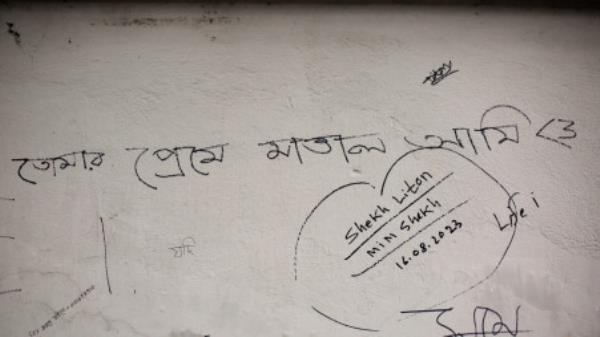 তোমার প্রেমে মাতাল আমি <3
Shekh Liton
Mim Shekh
16.08.2023
যদি